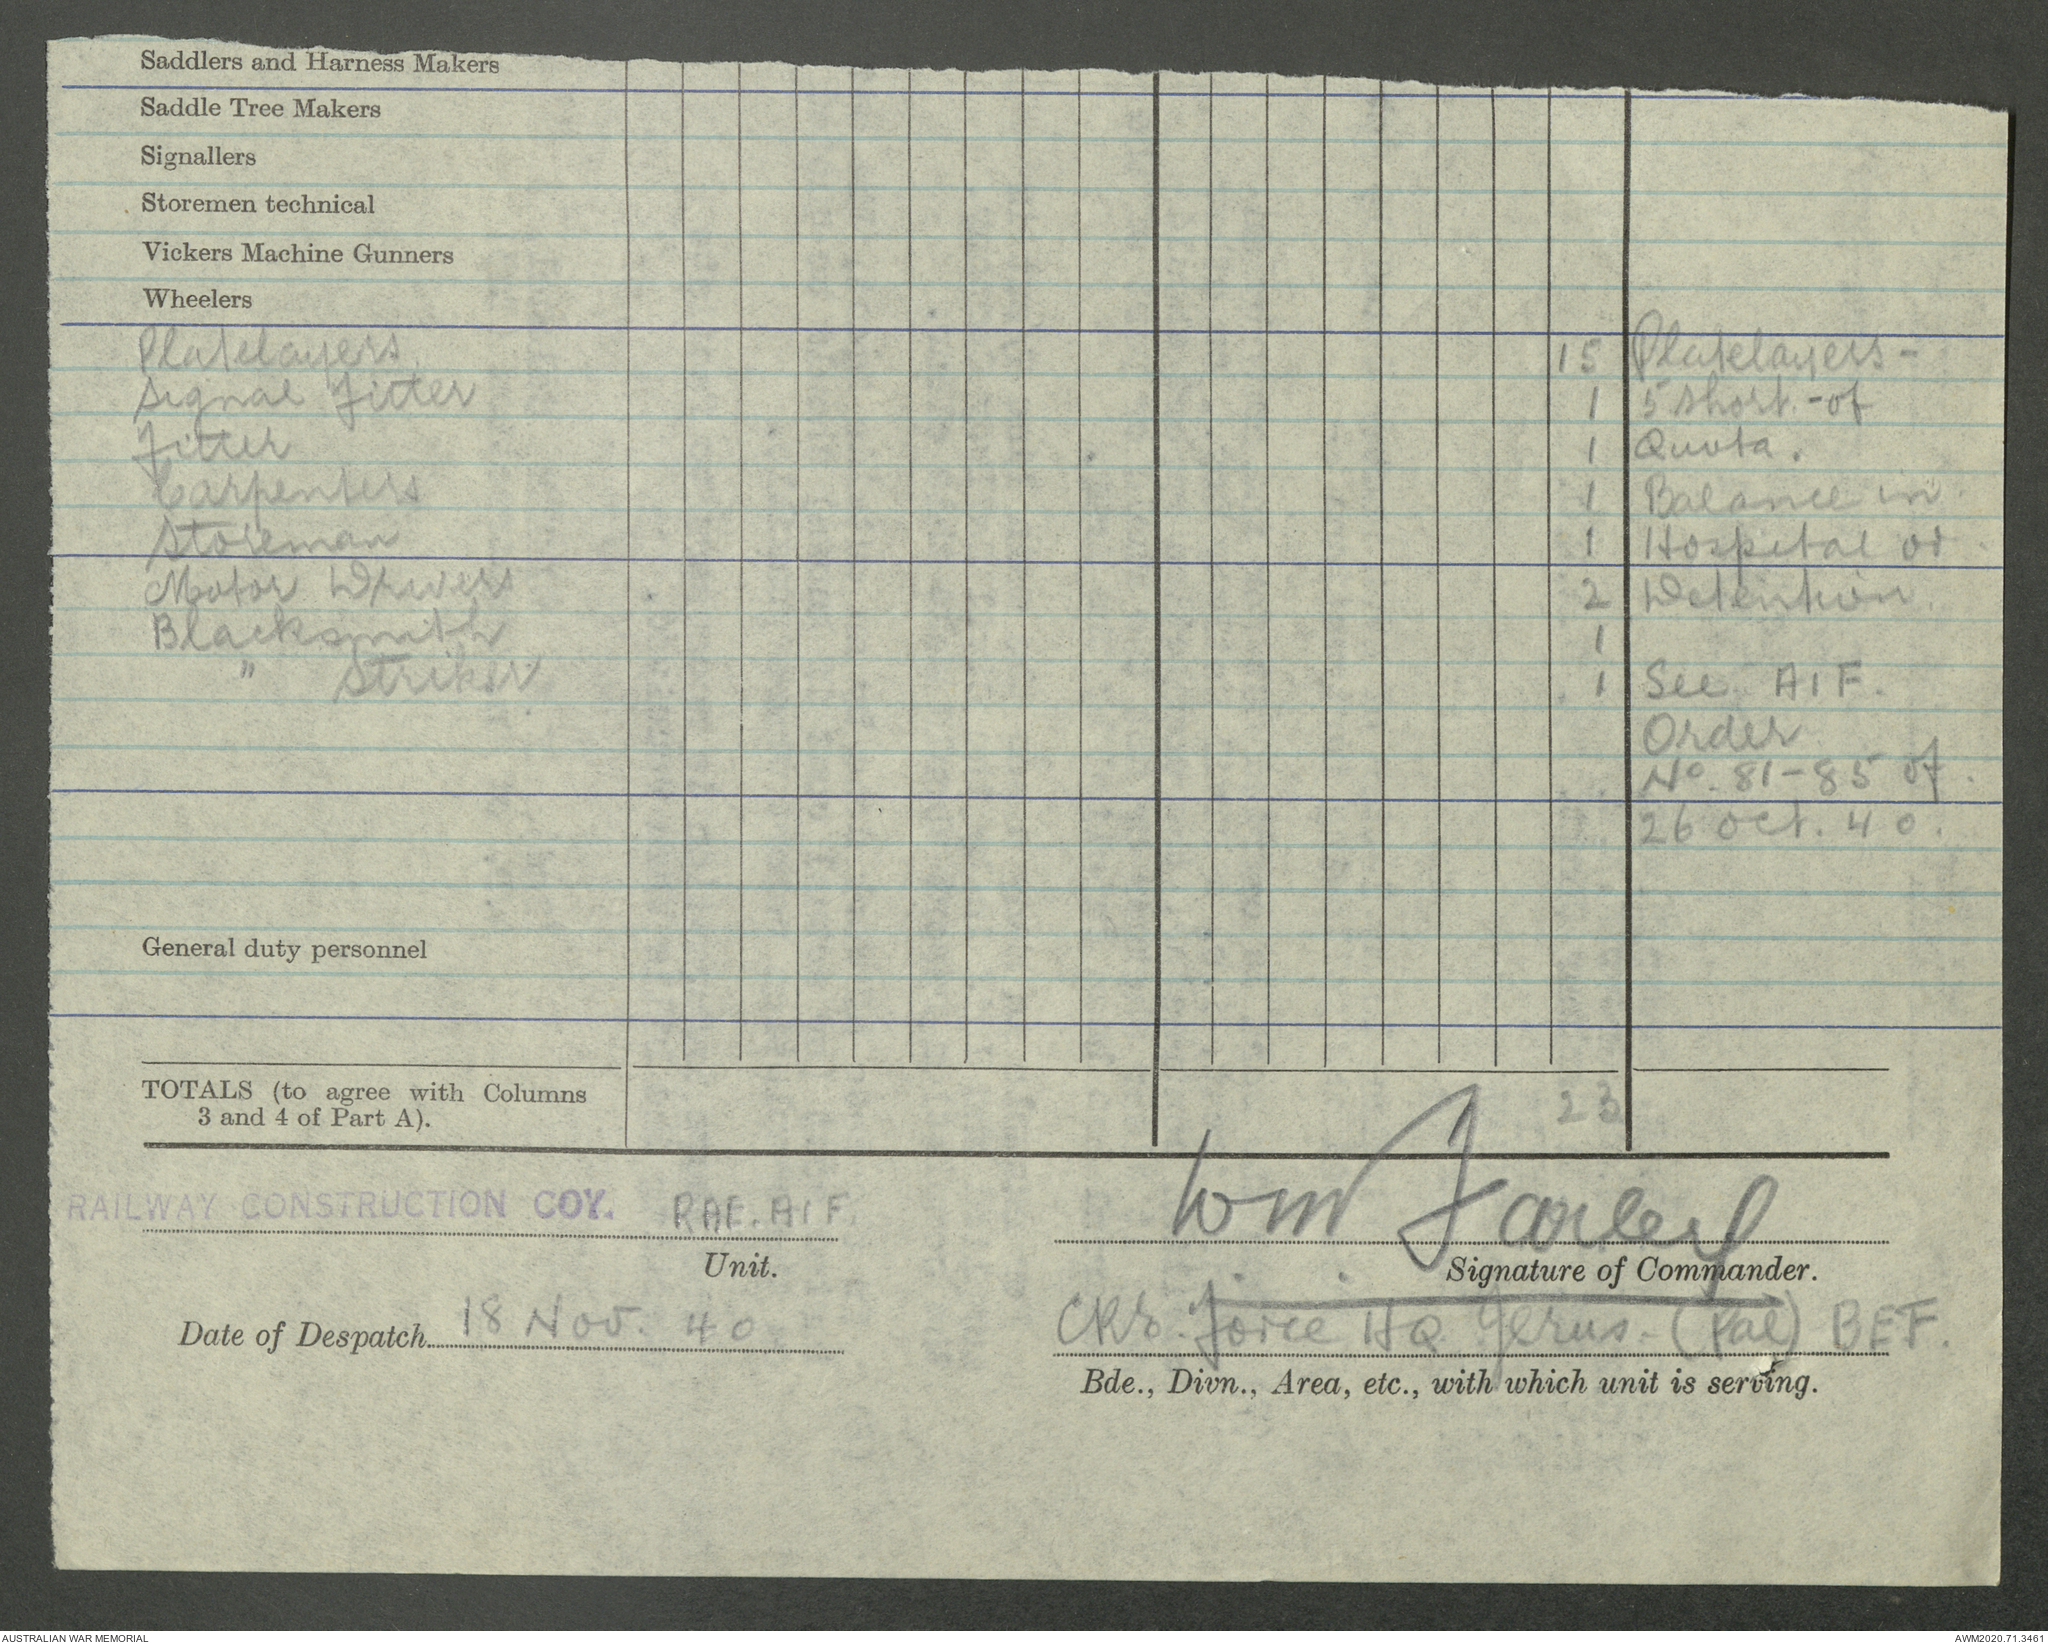 Saddlers and Harness Makers
Saddle Tree Makers
Signallers
Storemen technical
Vickers Machine Gunners
Wheelers
Platelayers 15 Platelayers -
Signal Fitter 1 5 short - of
Fitter 1 Quota.
Carpenters 1 Balance in
Storeman 1 Hospital or
Motor Drivers 2 Detention.
Blacksmith 1
" Striker 1 See AIF.
Order
No. 81-85 of
26 Oct. 40.
General duty personnel
TOTALS (to agree with Columns
3 and 4 of Part A). 23
RAILWAY CONSTRUCTION COY. RAE. AIF.
Unit.
Wm
Signature of Commander.
Date of Despatch 18 Nov. 40
Force HQ Jerus. (Pal) BEF.
Bde., Divn., Area, etc., with which unit is serving.
AUSTRALIAN WAR MEMORIAL
AWM2020.71.3461